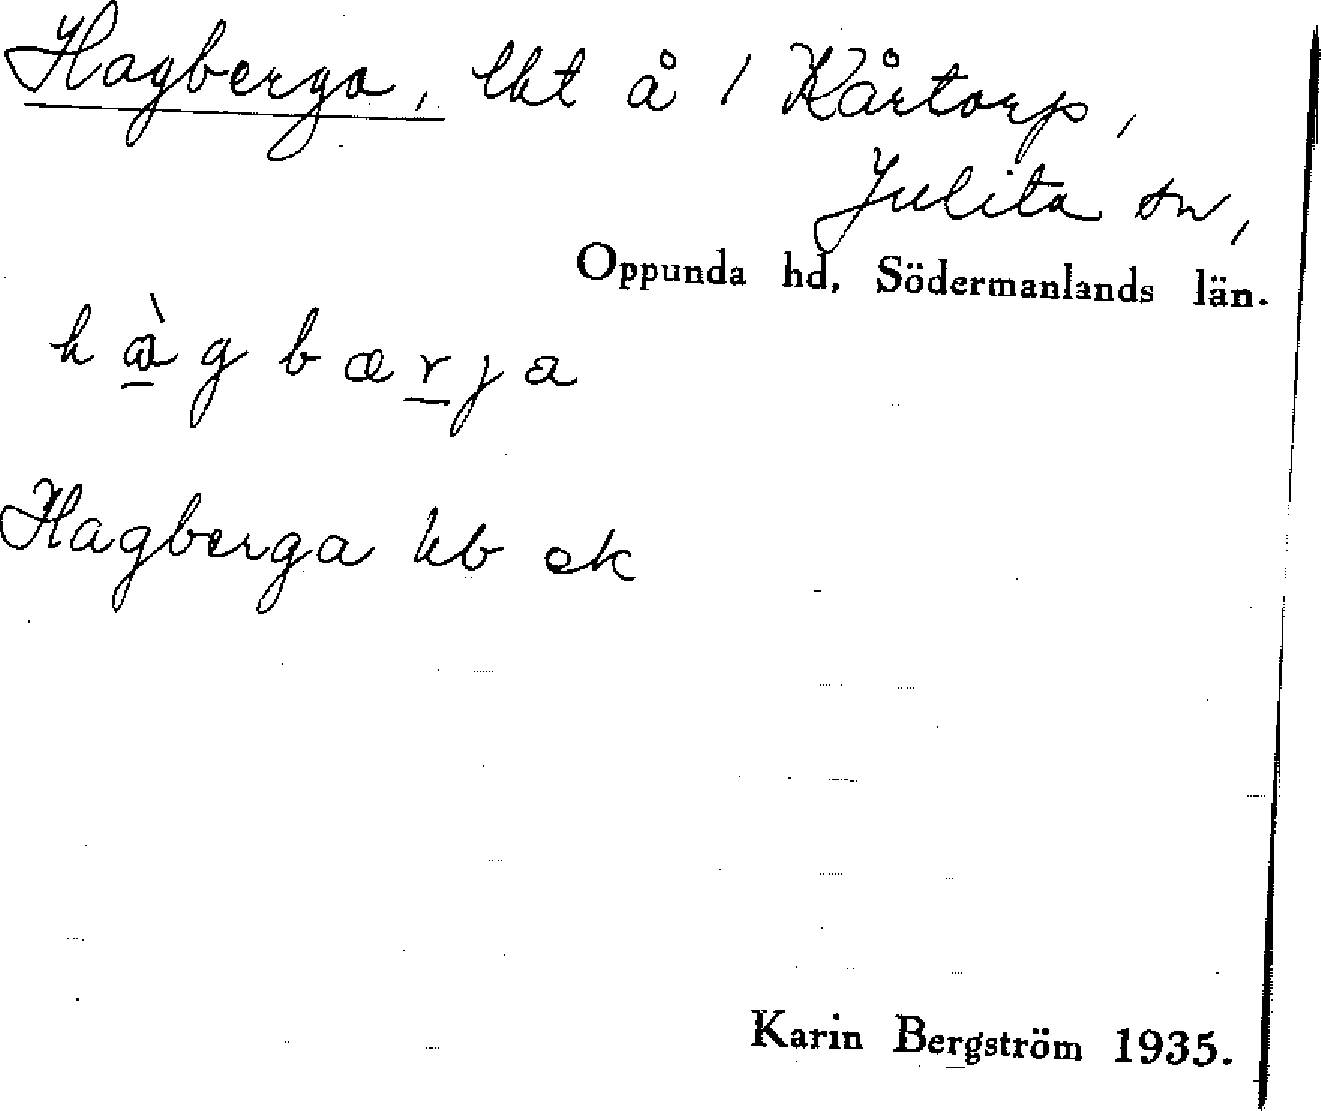 Hagberga, lht å 1 Kårtorp,
Julita sn,
Oppunda hd, Södermanlands län.
hàgbærja
Hagberga kb ek
Karin Bergström 1935.